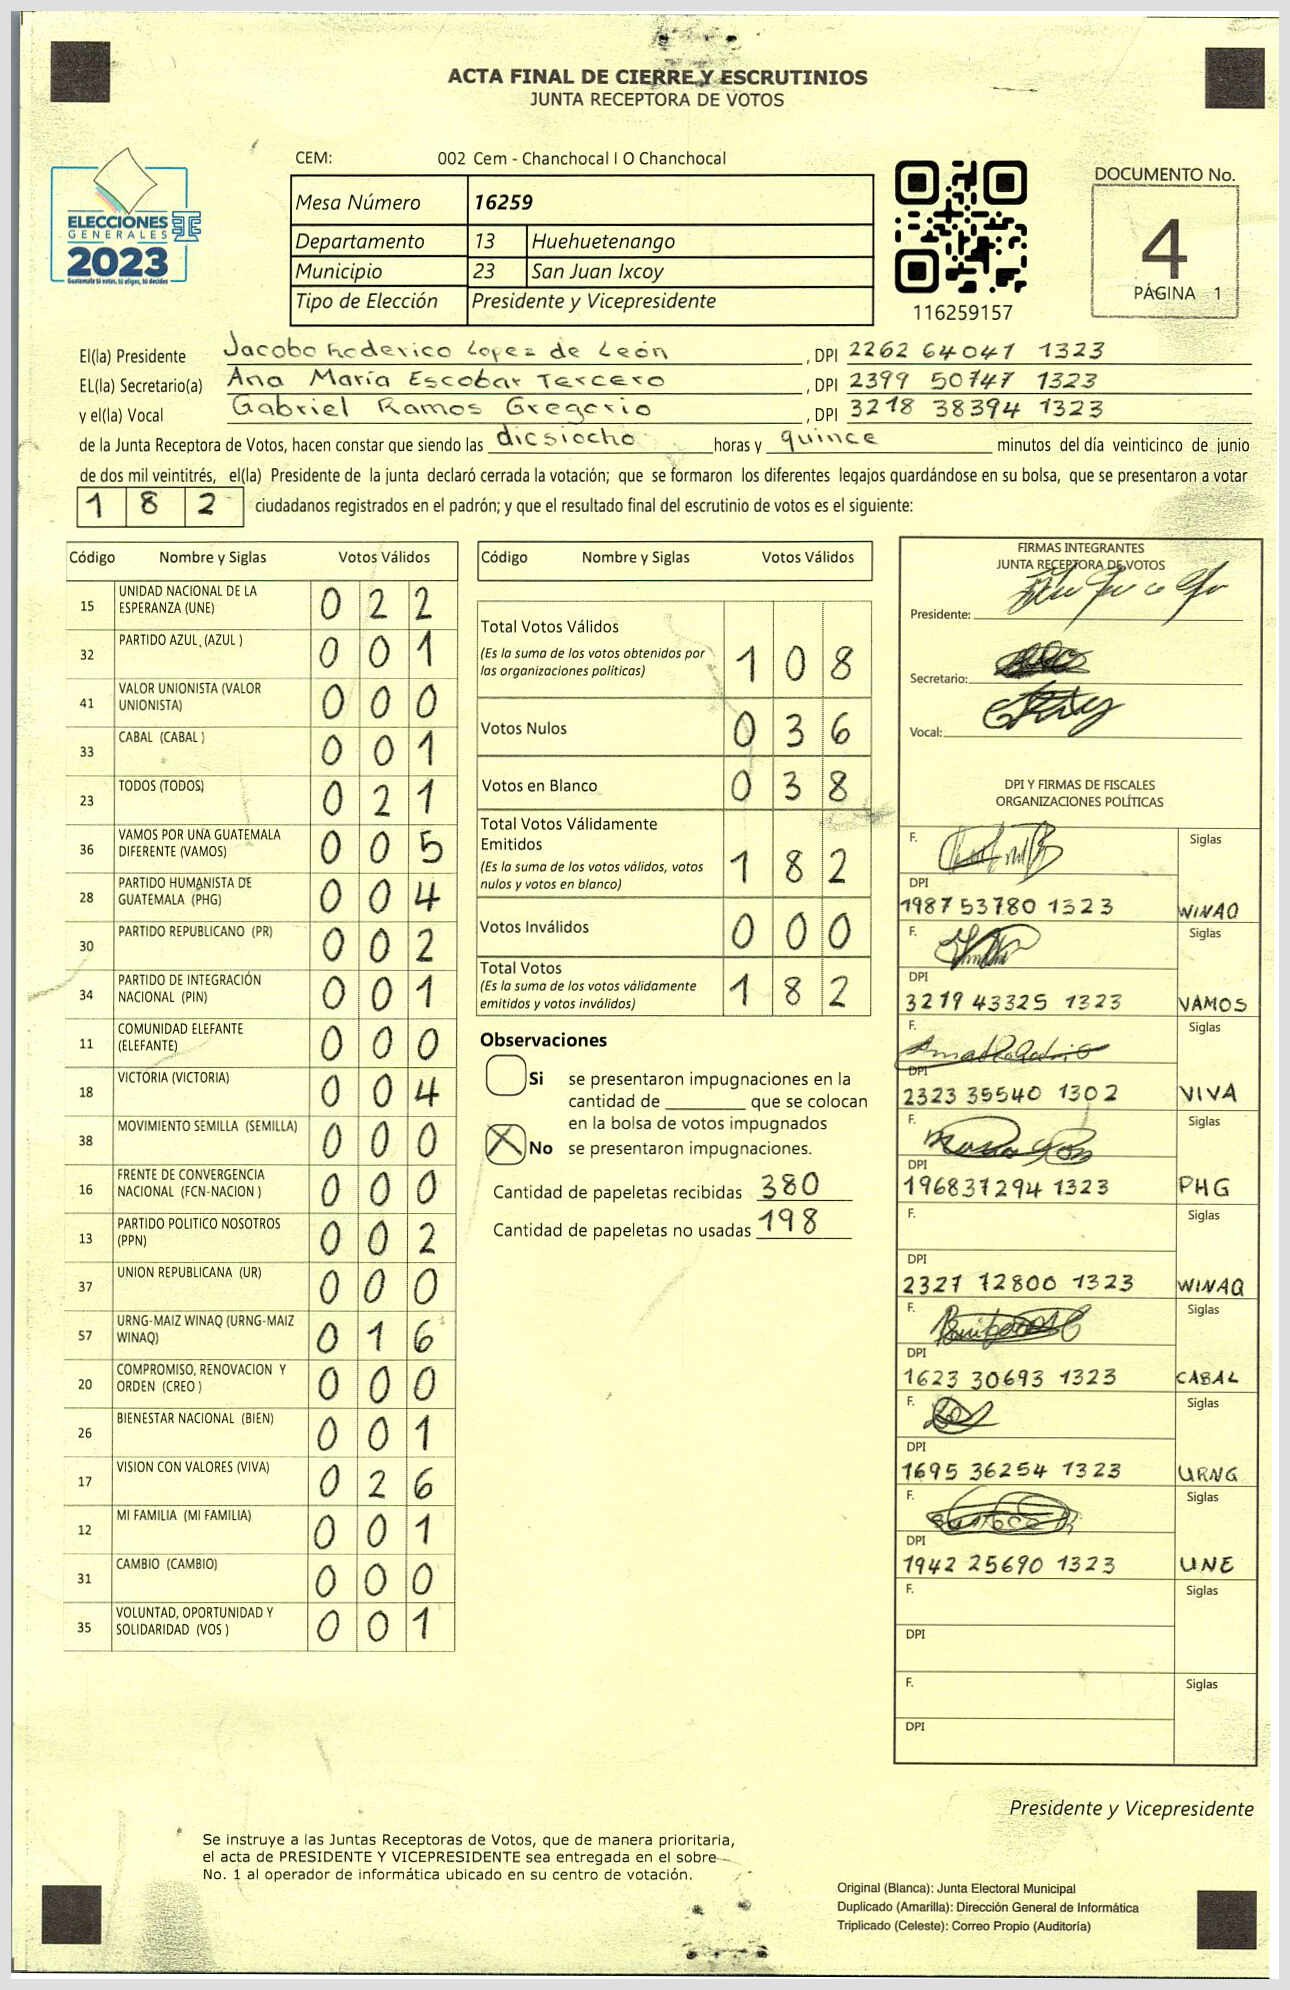 ACTA FINAL DE CIERRE Y ESCRUTINIOS
JUNTA RECEPTORA DE VOTOS
ELECCIONES
GENERALES
2023
Guatemala tú votas, tú eliges, tú decides
CEM: 002 Cem - Chanchocal I O Chanchocal
Mesa Número 16259
Departamento 13 Huehuetenango
Municipio 23 San Juan Ixcoy
Tipo de Elección Presidente y Vicepresidente
116259157
DOCUMENTO No.
4
PÁGINA 1
El(la) Presidente Jacobo Federico Lopez de León , DPI 2262 64041 1323
EL(la) Secretario(a) Ana María Escobar Tercero , DPI 2399 50747 1323
y el(la) Vocal Gabriel Ramos Gregorio , DPI 3218 38394 1323
de la Junta Receptora de Votos, hacen constar que siendo las dicsiocho horas y quince minutos del día veinticinco de junio
de dos mil veintitrés, el(la) Presidente de la junta declaró cerrada la votación; que se formaron los diferentes legajos quardándose en su bolsa, que se presentaron a votar
182 ciudadanos registrados en el padrón; y que el resultado final del escrutinio de votos es el siguiente:
Código Nombre y Siglas Votos Válidos
15 UNIDAD NACIONAL DE LA ESPERANZA (UNE) 022
32 PARTIDO AZUL (AZUL ) 001
41 VALOR UNIONISTA (VALOR UNIONISTA) 000
33 CABAL (CABAL ) 001
23 TODOS (TODOS) 021
36 VAMOS POR UNA GUATEMALA DIFERENTE (VAMOS) 005
28 PARTIDO HUMANISTA DE GUATEMALA (PHG) 004
30 PARTIDO REPUBLICANO (PR) 002
34 PARTIDO DE INTEGRACIÓN NACIONAL (PIN) 001
11 COMUNIDAD ELEFANTE (ELEFANTE) 000
18 VICTORIA (VICTORIA) 004
38 MOVIMIENTO SEMILLA (SEMILLA) 000
16 FRENTE DE CONVERGENCIA NACIONAL (FCN-NACION ) 000
13 PARTIDO POLITICO NOSOTROS (PPN) 002
37 UNION REPUBLICANA (UR) 000
57 URNG-MAIZ WINAQ (URNG-MAIZ WINAQ) 016
20 COMPROMISO, RENOVACION Y ORDEN (CREO ) 000
26 BIENESTAR NACIONAL (BIEN) 001
17 VISION CON VALORES (VIVA) 026
12 MI FAMILIA (MI FAMILIA) 001
31 CAMBIO (CAMBIO) 000
35 VOLUNTAD, OPORTUNIDAD Y SOLIDARIDAD (VOS ) 001
Código Nombre y Siglas Votos Válidos
Total Votos Válidos
(Es la suma de los votos obtenidos por
las organizaciones políticas) 108
Votos Nulos 036
Votos en Blanco 038
Total Votos Válidamente
Emitidos
(Es la suma de los votos válidos, votos
nulos y votos en blanco) 182
Votos Inválidos 000
Total Votos
(Es la suma de los votos válidamente
emitidos y votos inválidos) 182
Observaciones
Si se presentaron impugnaciones en la
cantidad de ________ que se colocan
en la bolsa de votos impugnados
X No se presentaron impugnaciones.
Cantidad de papeletas recibidas 380
Cantidad de papeletas no usadas 198
FIRMAS INTEGRANTES
JUNTA RECEPTORA DE VOTOS
Presidente:
Secretario:
Vocal:
DPI Y FIRMAS DE FISCALES
ORGANIZACIONES POLÍTICAS
F. Siglas
DPI
1987 53780 1323 WINAQ
F. Siglas
DPI
3219 43325 1323 VAMOS
F. Siglas
DPI
2323 35540 1302 VIVA
F. Siglas
DPI
196837294 1323 PHG
F. Siglas
DPI
2327 12800 1323 WINAQ
F. Siglas
DPI
1623 30693 1323 CABAL
F. Siglas
DPI
1695 36254 1323 URNG
F. Siglas
DPI
1942 25690 1323 UNE
F. Siglas
DPI
F. Siglas
DPI
Presidente y Vicepresidente
Se instruye a las Juntas Receptoras de Votos, que de manera prioritaria,
el acta de PRESIDENTE Y VICEPRESIDENTE sea entregada en el sobre
No. 1 al operador de informática ubicado en su centro de votación.
Original (Blanca): Junta Electoral Municipal
Duplicado (Amarilla): Dirección General de Informática
Triplicado (Celeste): Correo Propio (Auditoría)